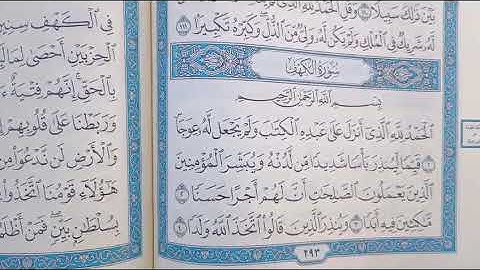 بَيْنَ ذَٰلِكَ سَبِيلًا ١١٠ وَقُلِ ٱلْحَمْدُ لِلَّهِ
لَّهُۥ شَرِيكٌ فِى ٱلْمُلْكِ وَلَمْ يَكُن لَّهُۥ وَلِىٌّ مِّنَ ٱلذُّلِّ وَكَبِّرْهُ تَكْبِيرًا ١١١
سُورَةُ الكَهْفِ
بِسْمِ ٱللَّهِ ٱلرَّحْمَٰنِ ٱلرَّحِيمِ
ٱلْحَمْدُ لِلَّهِ ٱلَّذِىٓ أَنزَلَ عَلَىٰ عَبْدِهِ ٱلْكِتَٰبَ وَلَمْ يَجْعَل لَّهُۥ عِوَجَا ١
قَيِّمًا لِّيُنذِرَ بَأْسًا شَدِيدًا مِّن لَّدُنْهُ وَيُبَشِّرَ ٱلْمُؤْمِنِينَ
ٱلَّذِينَ يَعْمَلُونَ ٱلصَّٰلِحَٰتِ أَنَّ لَهُمْ أَجْرًا حَسَنًا ٢
مَّٰكِثِينَ فِيهِ أَبَدًا ٣ وَيُنذِرَ ٱلَّذِينَ قَالُوا۟ ٱتَّخَذَ ٱللَّهُ وَلَدًا ٤
٢٩٣
فِى ٱلْكَهْفِ سِنِينَ
ٱلْحِزْبَيْنِ أَحْصَىٰ لِمَا
بِٱلْحَقِّ إِنَّهُمْ فِتْيَةٌ
وَرَبَطْنَا عَلَىٰ قُلُوبِهِمْ
وَٱلْأَرْضِ لَن نَّدْعُوَا۟
هَٰٓؤُلَآءِ قَوْمُنَا ٱتَّخَذُوا۟
بِسُلْطَٰنٍۭ بَيِّنٍ فَمَنْ